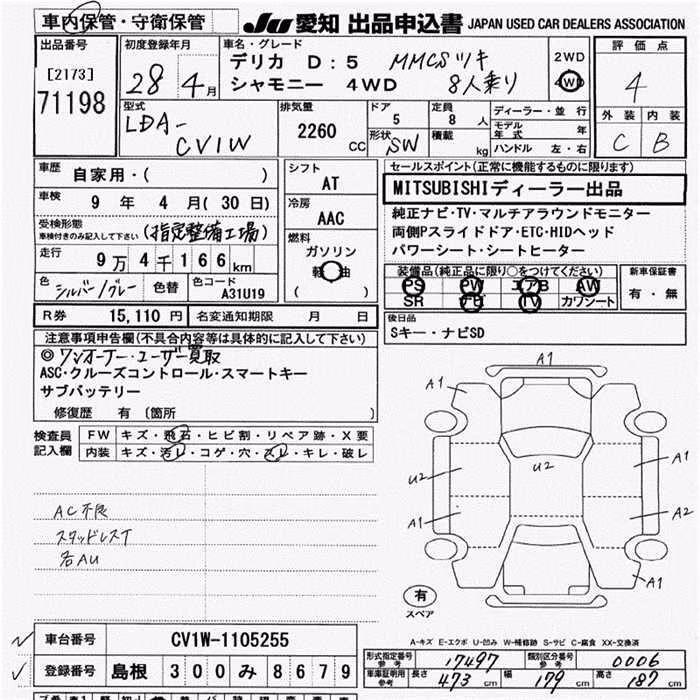 車内保管・守衛保管
JU 愛知 出品申込書 JAPAN USED CAR DEALERS ASSOCIATION
出品番号
[2173]
71198
初度登録年月
28年 4月
車名・グレード
デリカ D:5 MMCSツキ
シャモニー 4WD 8人乗り
2WD
4WD
評価点
4
外装 内装
C B
型式
LDA-
CV1W
排気量
2260
CC
ドア
5
形状
SW
定員
8 人
積載
kg
ディーラー・並行
モデル年式 年
ハンドル 左・右
車歴
自家用・( )
車検
9 年 4 月 (30 日)
受検形態
車検付きのみ記入して下さい
(指定整備工場)
走行
9万4千166km
色
シルバー/グレー
色替
色コード
A31U19
シフト
AT
冷房
AAC
燃料
ガソリン
軽油
( )
R券 15,110 円 名変通知期限 月 日
セールスポイント(正常に機能するものに限ります)
MITSUBISHIディーラー出品
純正ナビ・TV・マルチアラウンドモニター
両側Pスライドドア・ETC・HIDヘッド
パワーシート・シートヒーター
装備品(純正品に限り○をつけてください)
PS PW エアB AW
SR ナビ TV カワシート
新車保証書
有・無
後日品
Sキー・ナビSD
注意事項申告欄(不具合内容等は具体的に記入して下さい)
◎ワンオーナー・ユーザー買取
ASC・クルーズコントロール・スマートキー
サブバッテリー
修復歴 有 (箇所 )
検査員記入欄
FW キズ・飛石・ヒビ割・リペア跡・X要
内装 キズ・汚レ・コゲ・穴・スレ・キレ・破レ
AC不良
スタッドレスT
各AU
A1
A1
U2
U2
A1
A1
A2
A1
有
スペア
A-キズ E-エクボ U-凹み W-補修跡 S-サビ C-腐食 XX-交換済
車台番号 CV1W-1105255
登録番号 島根 300 み 8679
形式指定番号 参考 17497 類別区分番号 参考 0006
車庫証明用 参考 長さ 473 cm 幅 179 cm 高さ 187 cm